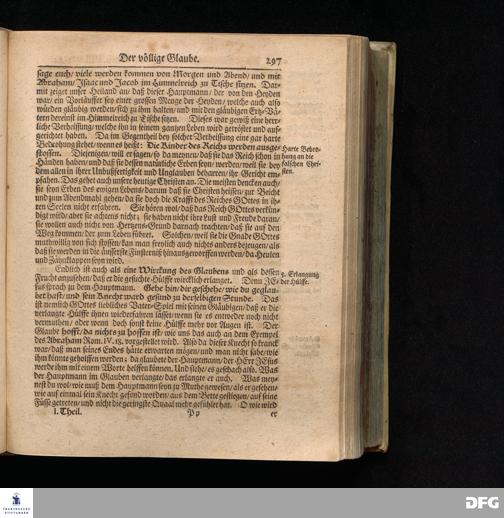 Der völlige Glaube. 297
sage euch/ viele werden kommen von Morgen und Abend/ und mit
Abraham/ Isaac und Jacob im Himmelreich zu Tische sitzen. Dar-
mit zeiget unser Heiland an/ daß dieser Hauptmann/ der von den Heyden
war/ ein Vorläuffer sey einer grossen Menge der Heyden/ welche auch also
würden gläubig werden/ sich zu ihm halten/ und mit den gläubigen Ertz-Vä-
tern dereinst im Himmelreich zu Tische sitzen. Dieses war gewiß eine herr-
liche Verheissung/ welche ihn in seinem gantzen Leben wird getröstet und auf-
gerichtet haben. Da im Gegentheil bey solcher Verheissung eine gar harte
Bedrohung stehet/ wenn es heißt: Die Kinder des Reichs werden ausge-
stossen. Diejenigen/ will er sagen/ so da meynen/ daß sie das Reich schon in
Händen haben/ und daß sie dessen natürliche Erben seyn/ werden/ weil sie bey
dem allen in ihrer Unbußfertigkeit und Unglauben beharren/ ihr Gericht em-
pfahen. Das gehet auch unsere heutige Christen an. Die meisten dencken auch/
sie seyn Erben des ewigen Lebens/ darum daß sie Christen heissen/ zur Beicht
und zum Abendmahl gehen/ da sie doch die Krafft des Reiches GOttes in ih-
ren Seelen nicht erfahren. Sie hören wol/ daß das Reich GOttes verkün-
digt wird/ aber sie achtens nicht; sie haben nicht ihre Lust und Freude daran/
sie wollen auch nicht von Hertzens-Grund darnach trachten/ daß sie auf den
Weg kommen/ der zum Leben führet. Solchen/ weil sie die Gnade GOttes
muthwillig von sich stossen/ kan man freylich auch nichts anders bezeugen/ als
daß sie werden in die äusserste Finsterniß hinausgeworffen werden/ da Heulen
und Zähnklappen seyn wird.
Endlich ist auch als eine Wirckung des Glaubens und als dessen
Frucht anzusehen/ daß er die gesuchte Hülffe wircklich erlanget. Denn JE-
sus sprach zu dem Hauptmann. Gehe hin/ dir geschehe/ wie du geglau-
bet hast/ und sein Knecht ward gesund zu derselbigen Stunde. Das
ist nemlich GOttes liebliches Vater-Spiel mit seinen Gläubigen/ daß er die
verlangte Hülffe ihnen wiederfahren lässet/ wenn sie es entweder noch nicht
vermuthen/ oder wenn doch sonst keine Hülffe mehr vor Augen ist. Der
Glaube hofft/ da nichts zu hoffen ist/ wie uns das auch an dem Exempel
des Abraham Rom. IV. 18. vorgestellet wird. Also da dieser Knecht so kranck
war/ daß man seines Endes hätte erwarten mögen/ und man nicht sahe/ wie
ihm könnte geholffen werden; da glaubete der Hauptmann/ der HErr JEsus
werde ihm mit einem Worte helffen können. Und siehe/ es geschach also. Was
der Hauptmann im Glauben verlangte/ das erlangte er auch. Was mey-
nest du wol/ wie muß dem Hauptmann seyn zu Muthe gewesen/ als er gesehen/
wie auf einmal sein Knecht gesund worden/ aus dem Bette gestiegen/ auf seine
Füsse getreten/ und nicht die geringste Quaal mehr gefühlet hat. O wie wird
I. Theil. Pp er
Harte Bedro-
hung an die
falschen Chri-
sten.
3. Erlangung
der Hülffe.
FRANCKESCHE
STIFTUNGEN
DFG